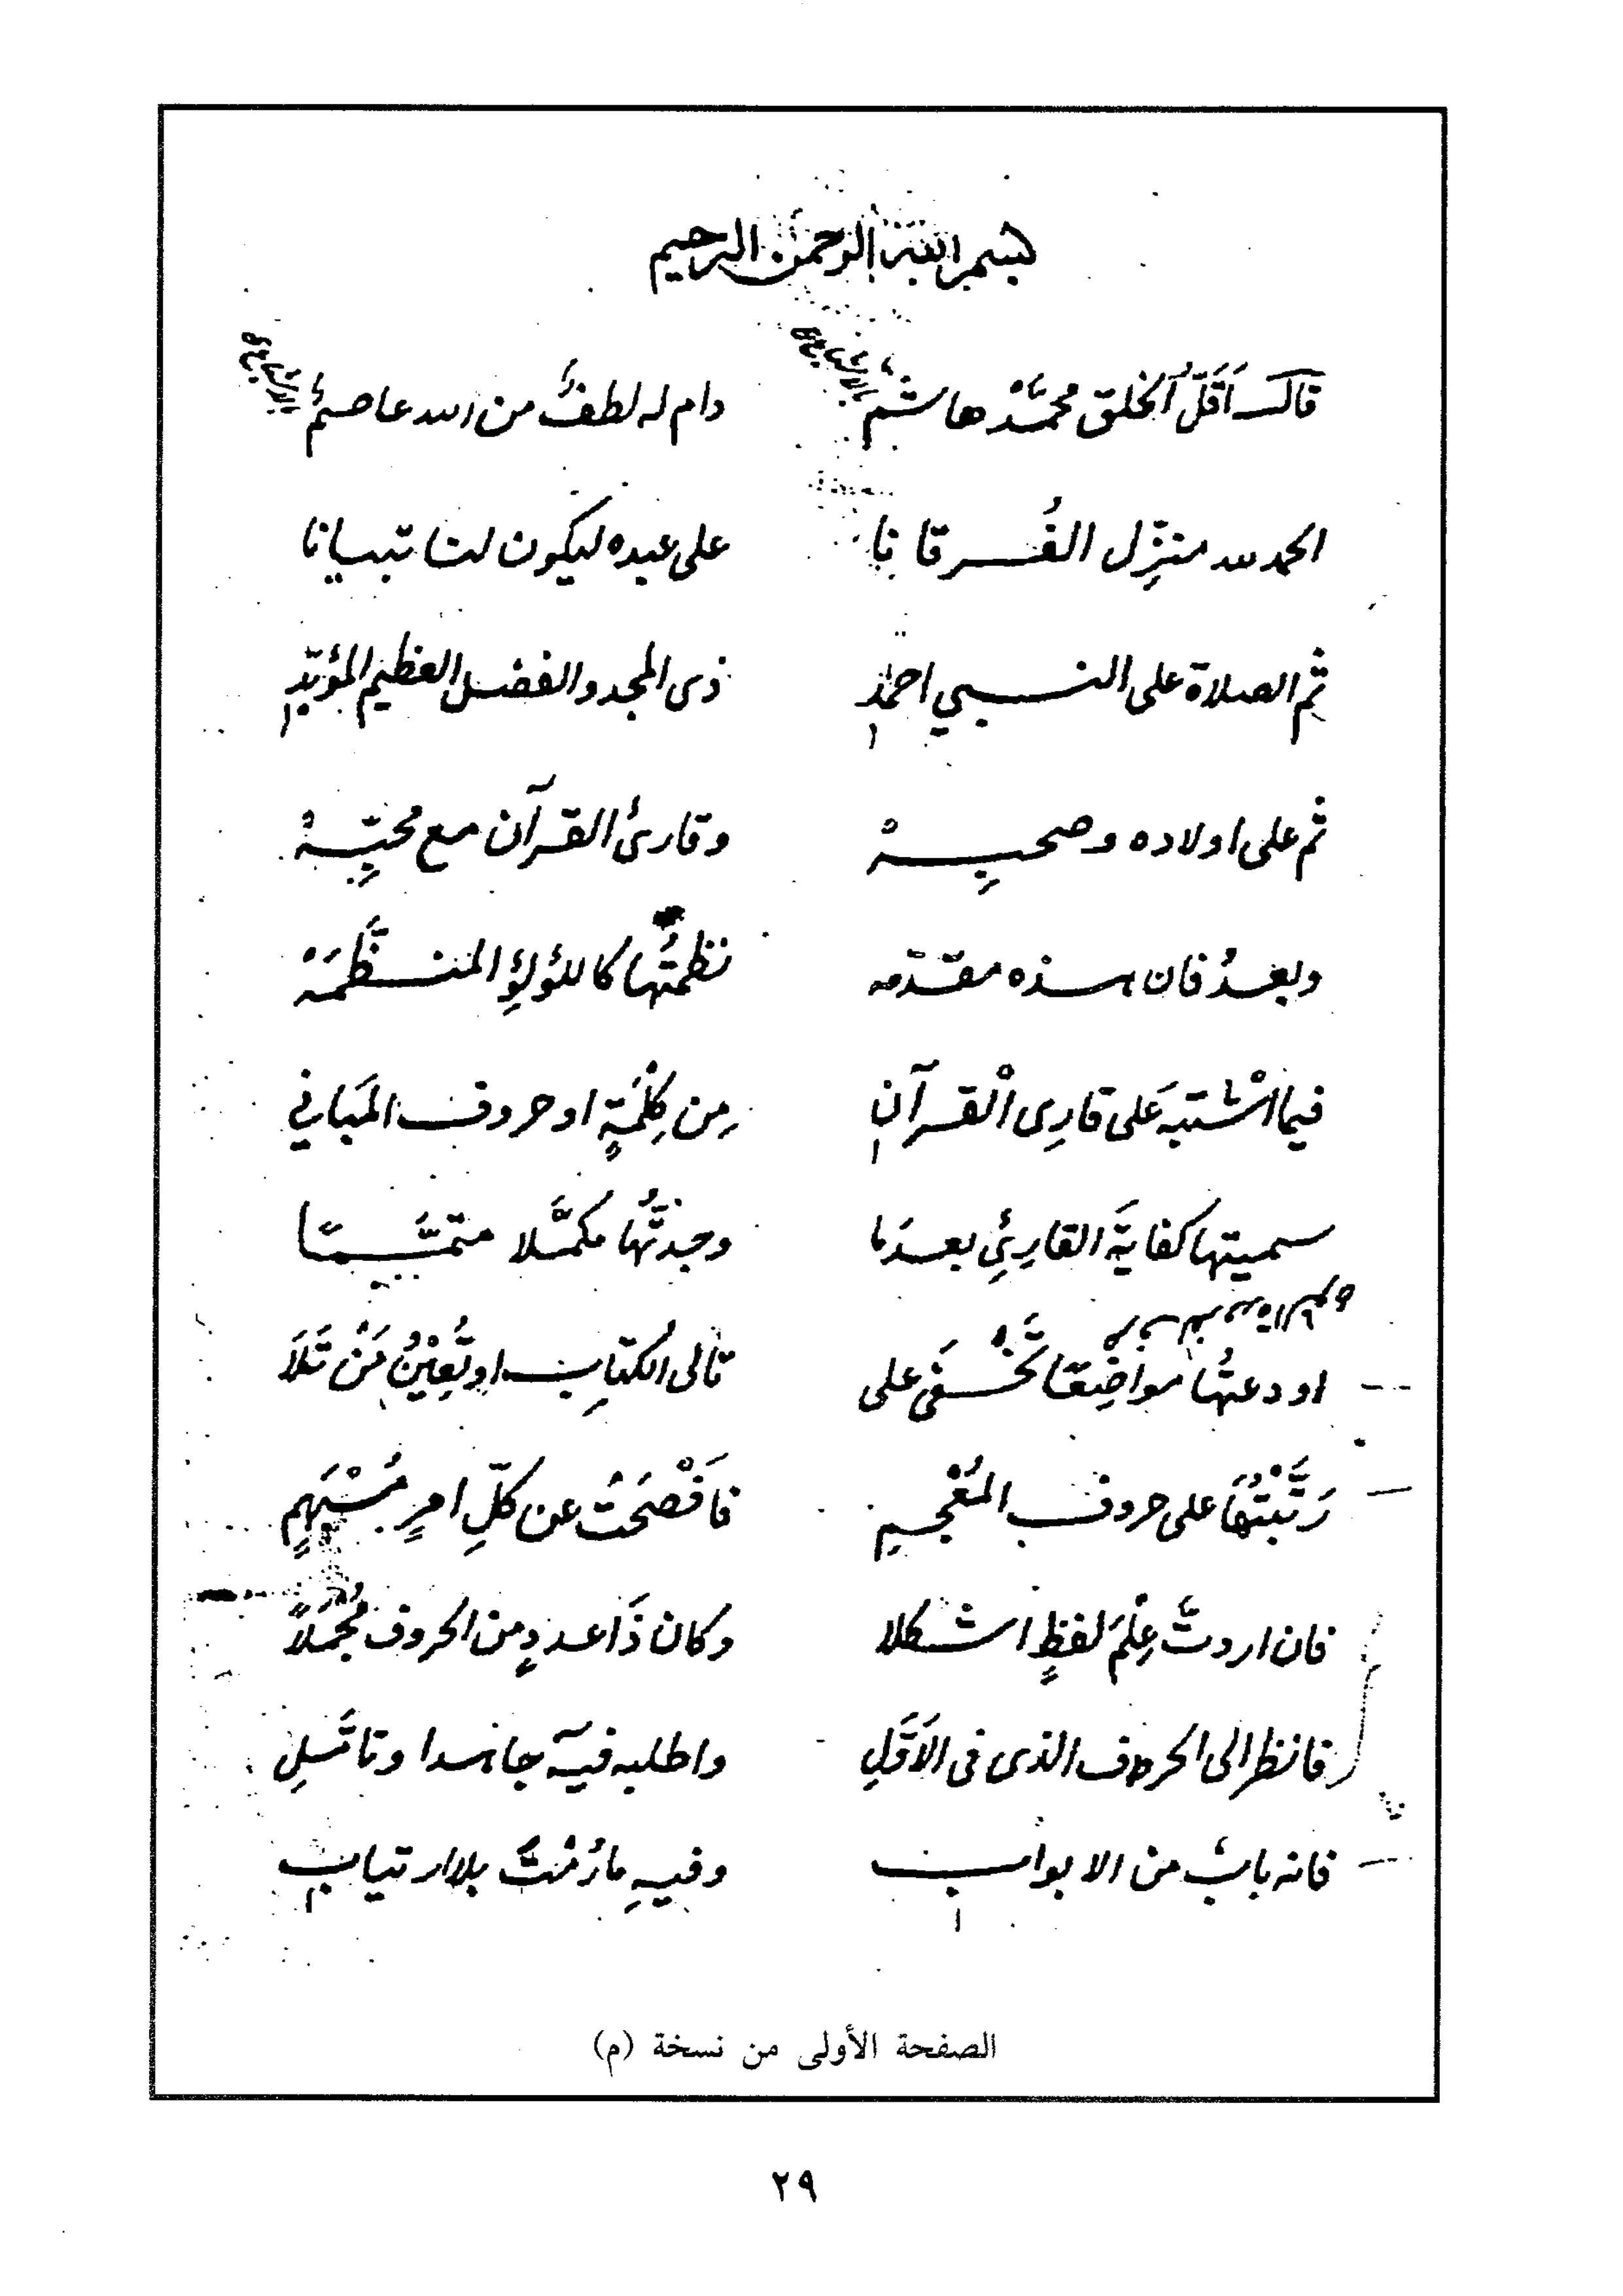 بسم الله الرحمن الرحيم
قال اَقَلُّ الخلق محمّدْ هاشمُ دام له لطفٌ من الله عاصمُ
الحمد لله منزِل الفُرقانا على عبده ليكون لنا تبيانا
ثم الصلاة على النبي احمدِ ذى المجد والفضل العظيم المؤيّدِ
ثم على اولاده وصحبِهْ وقارئ القرآن مع محبِّهْ
وبعدُ فان هذه مقدّمه نظمتُها كاللؤلؤِ المنظَّمَهْ
فيما اشْتبهَ على قارِى الْقرآنِ مِن كِلْمَةٍ او حروف المَبَاني
سميتها كفايةَ القارِئِ بعدَما وجدتُّها مكمَّلا متمَّمًا
اودعتُها مواضِعًا تَخْفَى على تالى الكتابِ او تُعِيْنُ مَنْ تَلَا
رَتَّبْتُهَا على حروف المُعْجمِ فَافْصَحَتْ عن كلِّ امرٍ مُبْهَمٍ
فان اردتَّ عِلْمَ لفظٍ اشكلا وكان ذَا عددٍ من الحروف مُجْمَلًا
فانظر الى الحرف الذى فى الاَوَّلِ واطلبه فيه جاهدا وتامَّلِ
فانه بابٌ من الابواب وفيهِ مارُمْتَ بلا ارتيابِ
الصفحة الأولى من نسخة (م)
٢٩